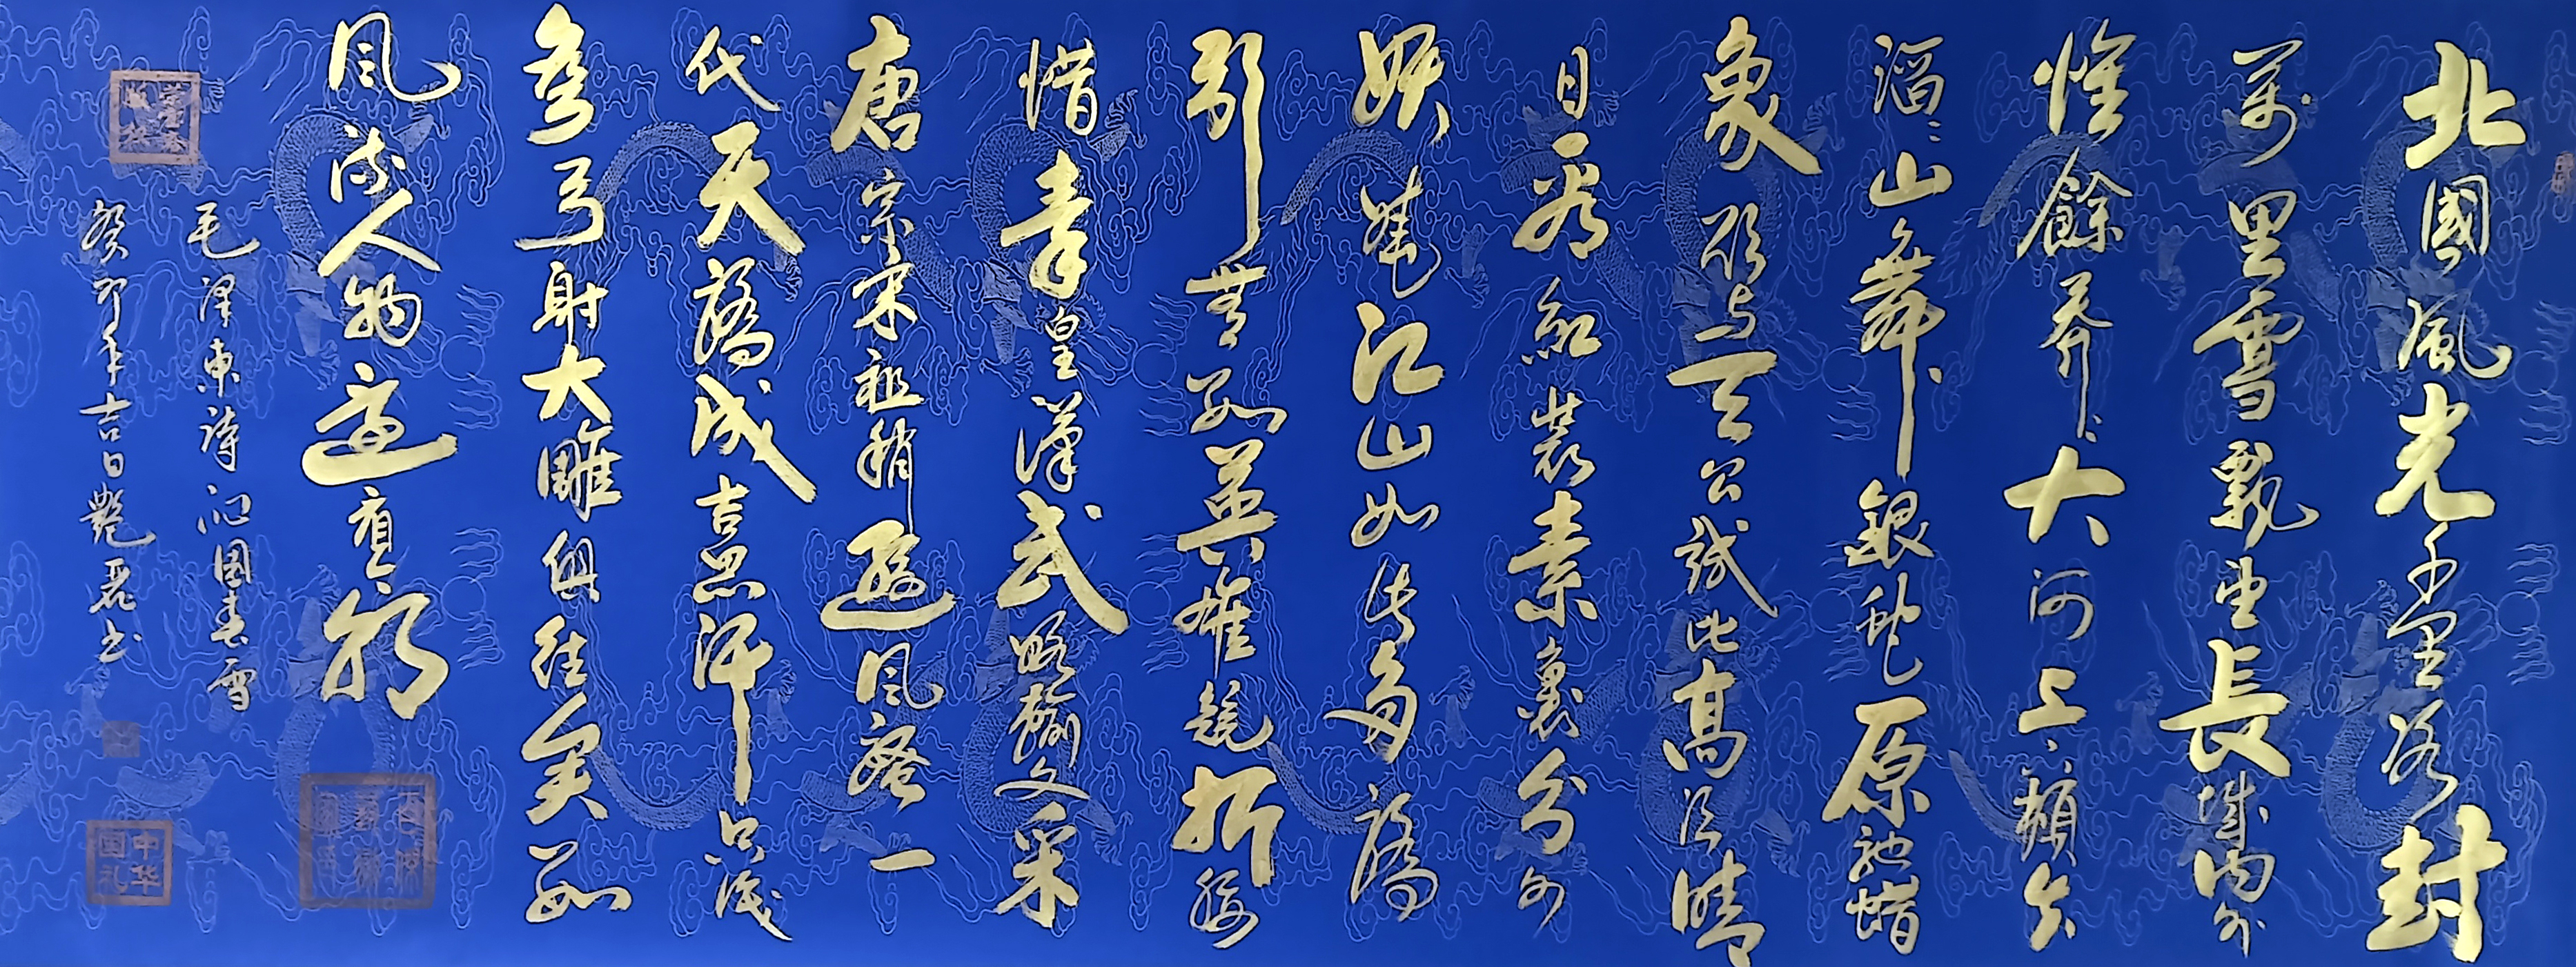 北國風光千里冰封
萬里雪飄望長城内外
惟餘莽〻大河上下頓失
滔〻山舞銀蛇原馳蠟
象欲与天公試比高須晴
日看紅裝素裹分外
妖嬈江山如此多嬌
引無數英雄競折腰
惜秦皇漢武略輸文采
唐宗宋祖稍遜风騷一
代天驕成吉思汗只識
彎弓射大雕俱往矣數
风流人物還看今朝
毛泽東詩沁園春雪
癸卯年吉日艷麗书
中华国礼